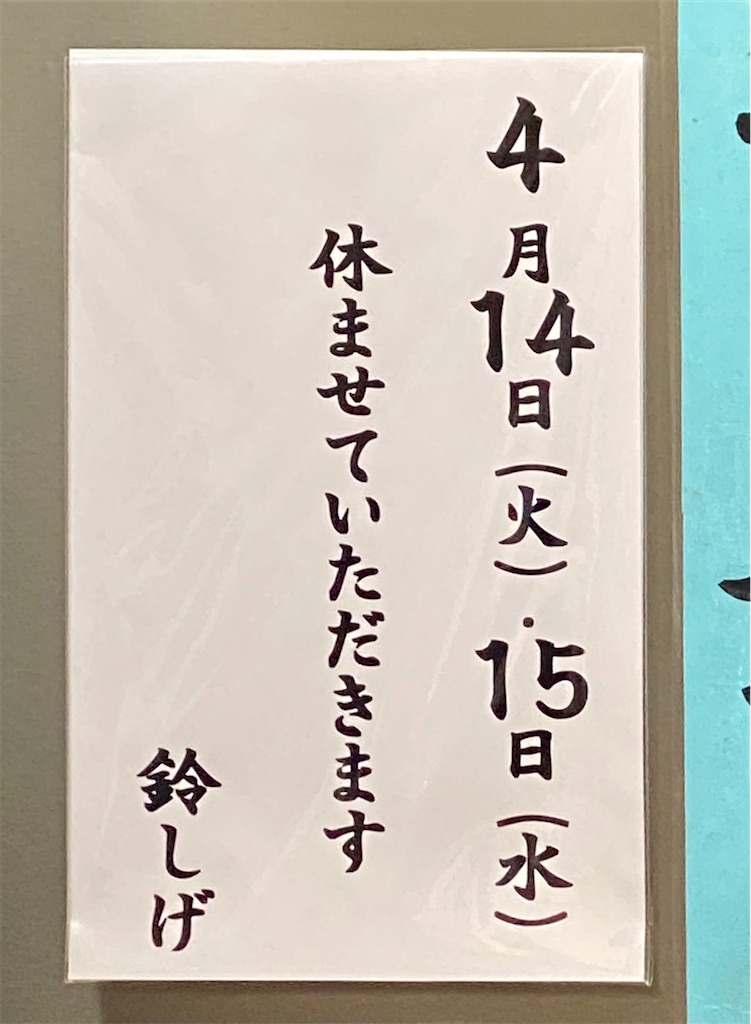 4月14日(火)・15日(水)
休ませていただきます
鈴しげ